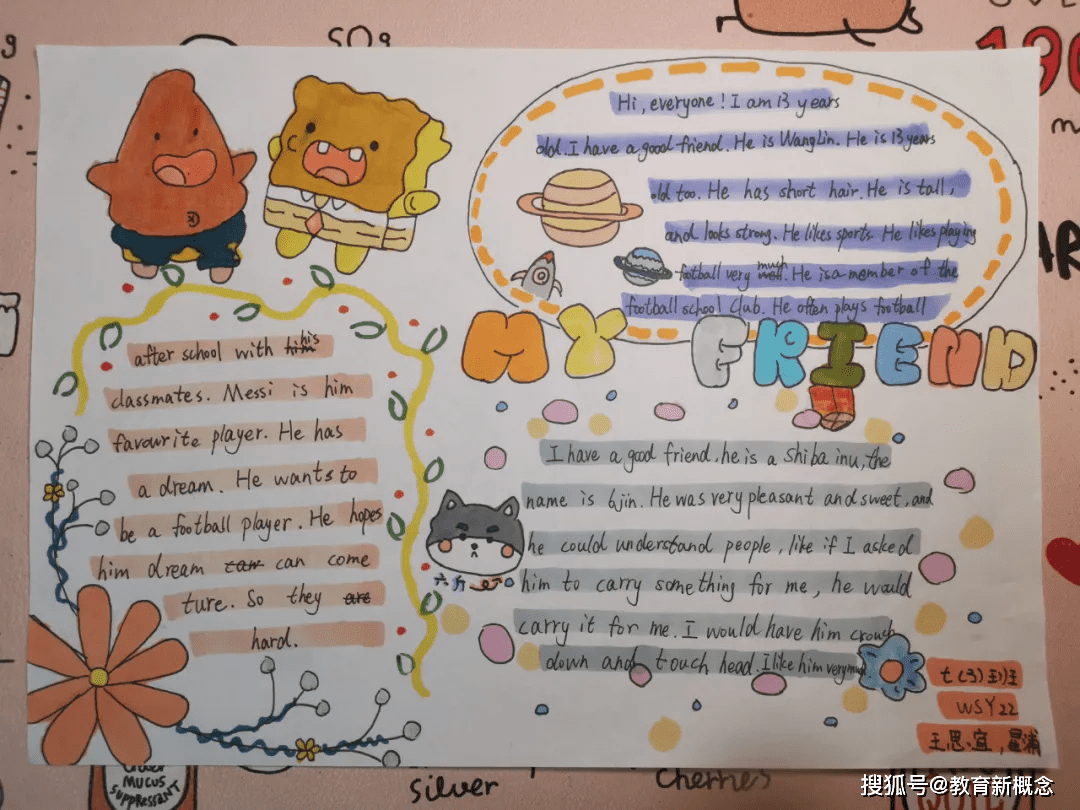 SO9
190
Hi, everyone! I am 13 years
old. I have a good friend. He is WangLin. He is 13 years
old too. He has short hair. He is tall,
and looks strong. He likes sports. He likes playing
football very well much. He is a member of the
football school club. He often plays football
MY FRIEND
after school with his
classmates. Messi is him
favourite player. He has
a dream. He wants to
be a football player. He hopes
him dream can come
ture. So they are
hard.
I have a good friend. he is a Shiba inu, the
name is 6jin. He was very pleasant and sweet, and
he could understand people, like if I asked
him to carry something for me, he would
carry it for me. I would have him crouch
down and touch head. I like him very much
六斤
七(3)班
WSY22
王思宜,
MUCUS
SUPPRESSANT
silver
cherries
搜狐号@教育新概念